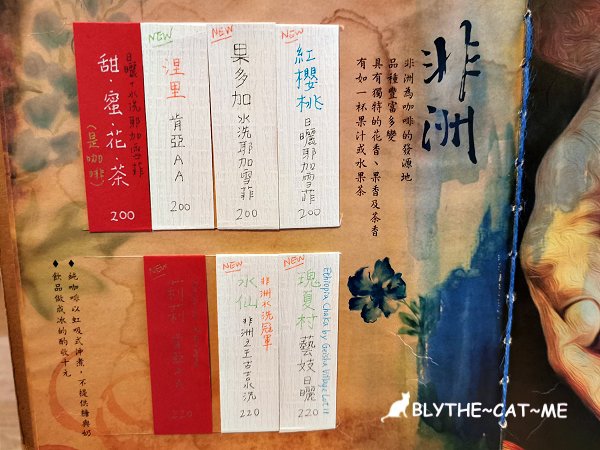 非洲
非洲為咖啡的發源地
品種豐富多變
具有獨特的花香、果香及茶香
有如一杯果汁或水果茶
NEW
紅櫻桃
日曬耶加雪菲
200
NEW
果多加
水洗耶加雪菲
200
NEW
涅里
肯亞AA
200
甜·蜜·花·茶
日曬+水洗耶加雪菲
(是咖啡)
200
NEW
瑰夏村
藝妓日曬
Ethiopia Chaka by Geisha Village Lot
220
NEW
水仙
非洲水洗冠軍
非洲之王古吉水洗
220
NEW
220
♦純咖啡以虹吸式沖煮,不提供糖與奶
♦飲品做成冰的酌收十元
BLYTHE~CAT~ME